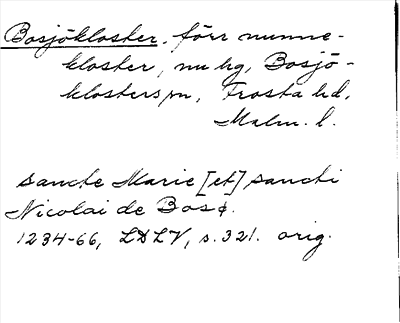 Bosjökloster, förr nunne-
kloster, nu hg, Bosjö-
klosters sn, Frosta hd,
Malm. l.
sancte Marie [et] sancti
Nicolai de Bosø.
1234-66, LDLV, s. 321. orig.